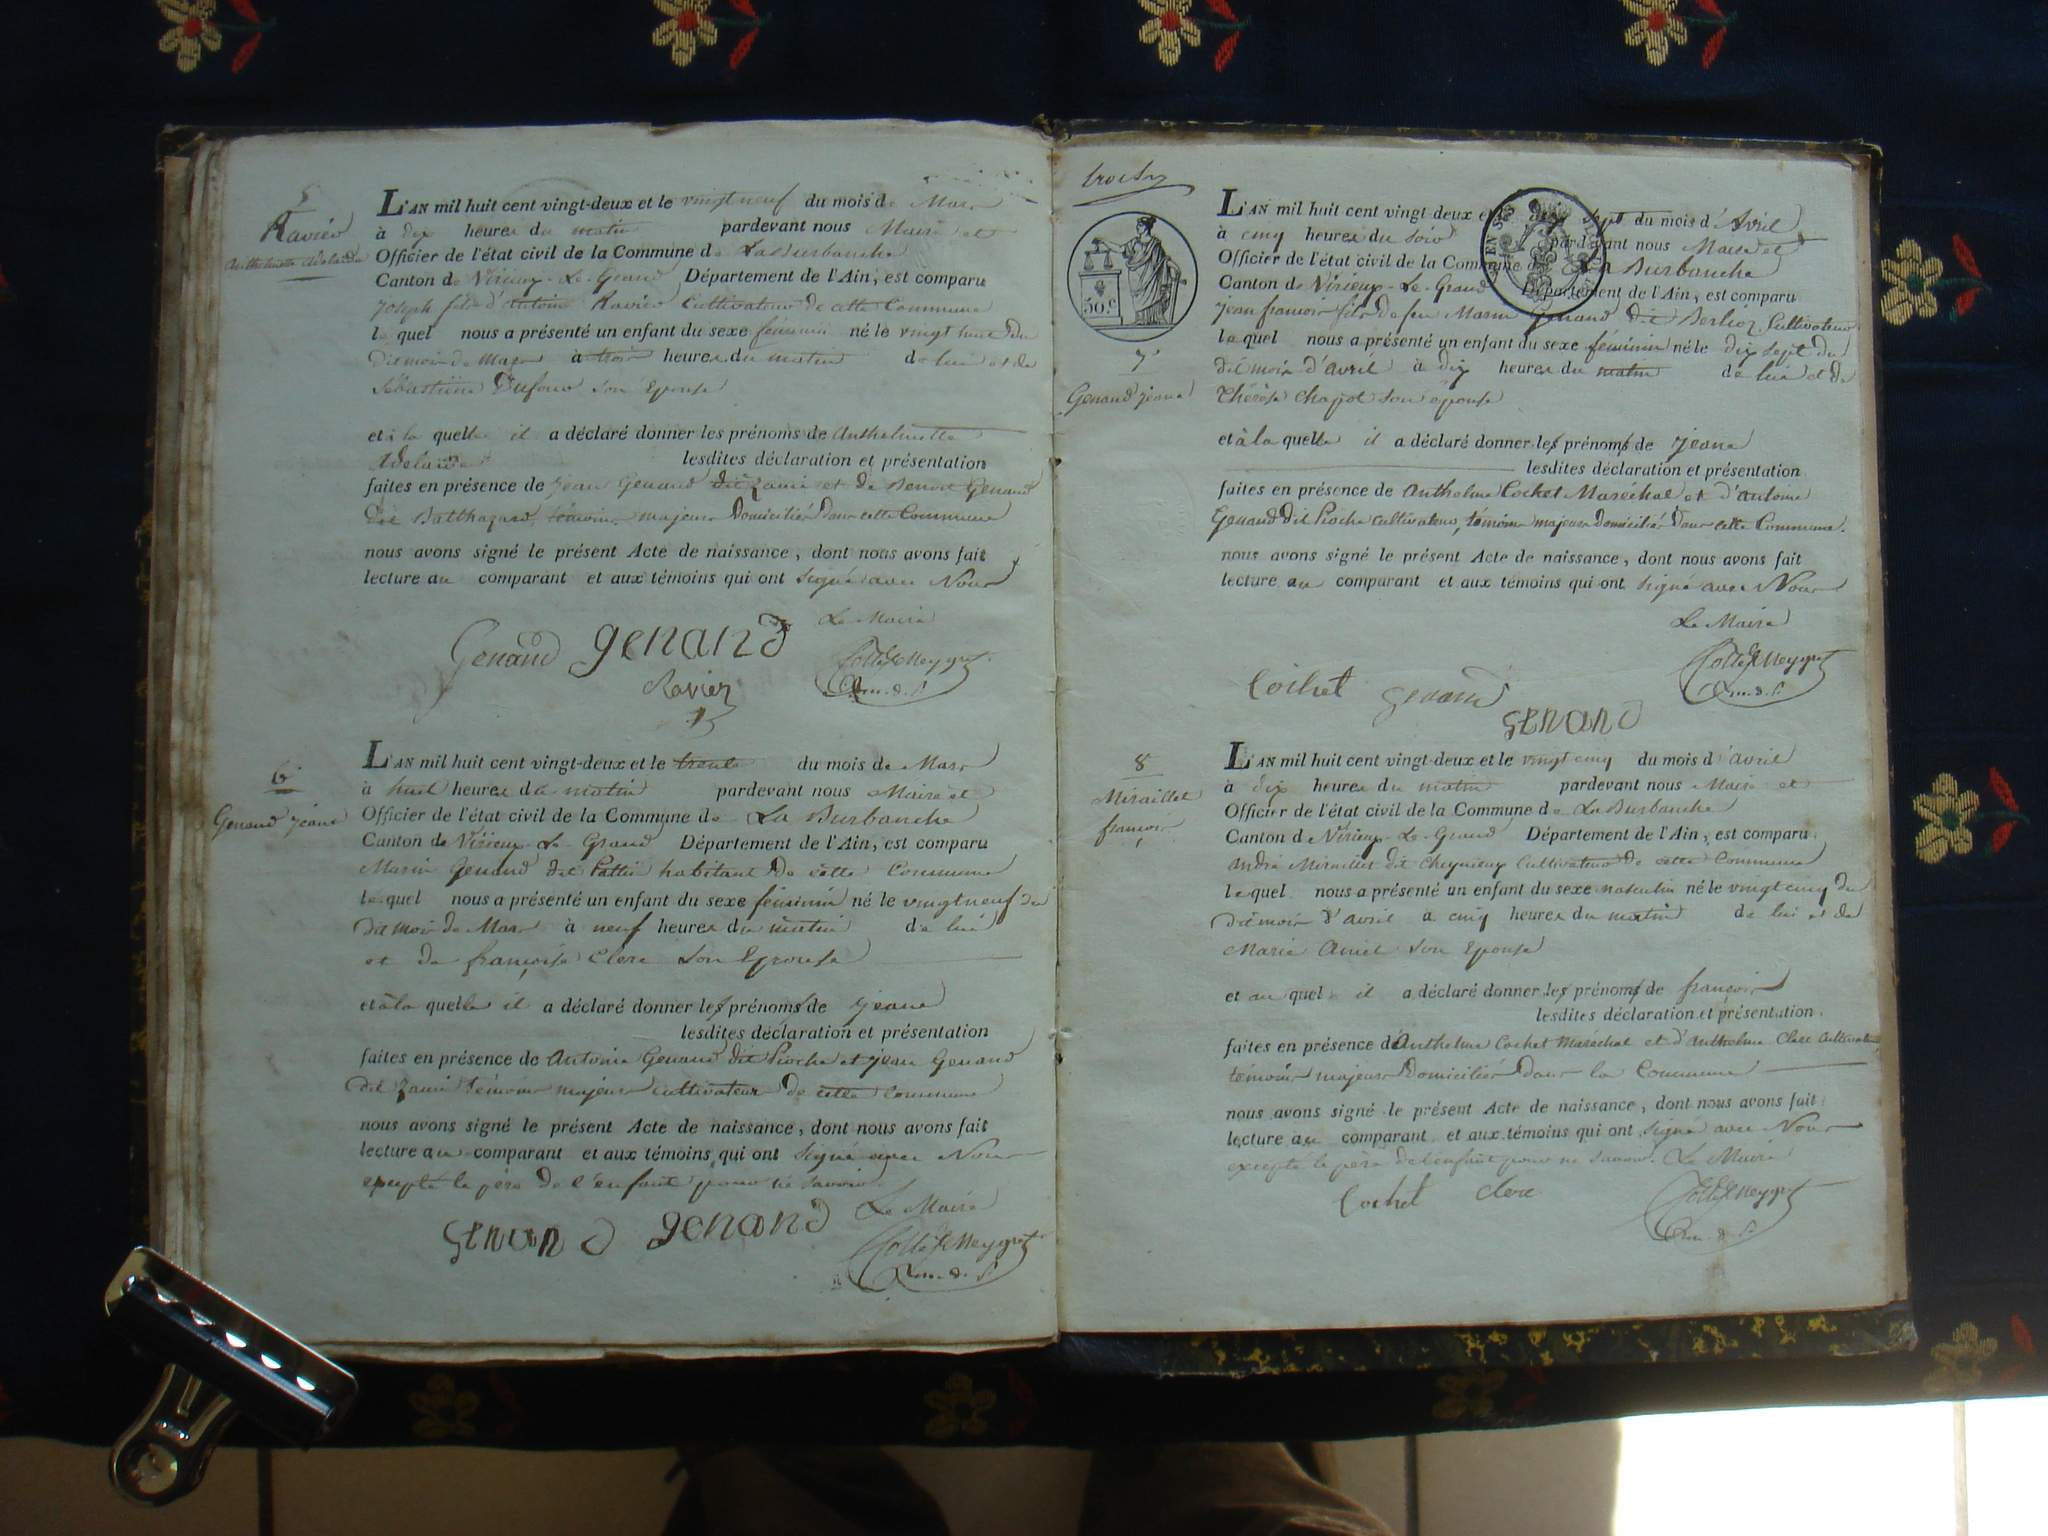 5
Ravier
Anthelmette Adelaide
L'AN mil huit cent vingt-deux et le vingt neuf du mois de Mars
à dix heures du matin pardevant nous Maire et
Officier de l'état civil de la Commune de La Burbanche
Canton de Virieux-Le-Grand Département de l'Ain, est comparu
Joseph fils d'Antoine Ravier Cultivateur de cette Commune
lequel nous a présenté un enfant du sexe féminin né le vingt neuf du
dit mois de Mars à trois heures du matin de lui et de
Sébastiene Dufour son Epouse
et à la quelle il a déclaré donner les prénoms de Anthelmette
Adelaide lesdites déclaration et présentation
faites en présence de Jean Genand dit Zami et de Benoit Genand
dit Balthazard, témoins majeurs Domiciliés Dans cette Commune
nous avons signé le présent Acte de naissance, dont nous avons fait
lecture au comparant et aux témoins qui ont signé avec Nous
Le Maire
Genand genand
Ravier
6
Genand jeane
L'AN mil huit cent vingt-deux et le trente du mois de Mars
à huit heures du matin pardevant nous Maire et
Officier de l'état civil de la Commune de La Burbanche
Canton de Virieux-Le-Grand Département de l'Ain, est comparu
Marin Genand dit Pattin habitant de cette Commune
lequel nous a présenté un enfant du sexe féminin né le vingt neuf du
dit mois de Mars à neuf heures du matin de lui
et de françoise Clerc son Epouse
et à la quelle il a déclaré donner les prénoms de jeane
lesdites déclaration et présentation
faites en présence de Antoine Genand dit Pioche et jean Genand
dit Zami témoins majeurs cultivateurs de cette Commune
nous avons signé le présent Acte de naissance, dont nous avons fait
lecture au comparant et aux témoins qui ont signé avec Nous
excepté le père de l'enfant pour ne savoir
Le Maire
genand genand
50.c
7
Genand jeane
L'AN mil huit cent vingt-deux et le dix sept du mois d'Avril
à cinq heures du soir pardevant nous Maire et
Officier de l'état civil de la Commune de La Burbanche
Canton de Virieux-Le-Grand Département de l'Ain, est comparu
jean francois fils de feu Marin Genand dit Berlioz Cultivateur
lequel nous a présenté un enfant du sexe féminin né le dix sept du
dit mois d'avril à dix heures du matin de lui et de
Thérèse Chapot son épouse
et à la quelle il a déclaré donner les prénoms de jeane
lesdites déclaration et présentation
faites en présence de Anthelme Cochet Maréchal et d'antoine
Genand dit Pioche cultivateur, témoins majeurs domiciliés dans cette Commune.
nous avons signé le présent Acte de naissance, dont nous avons fait
lecture au comparant et aux témoins qui ont signé avec Nous
Le Maire
Cochet genand
genand
8
Miraillet
françois
L'AN mil huit cent vingt-deux et le vingt cinq du mois d'avril
à dix heures du matin pardevant nous Maire et
Officier de l'état civil de la Commune de La Burbanche
Canton de Virieux-Le-Grand Département de l'Ain, est comparu
André Miraillet dit Cheynieux Cultivateur de cette Commune
lequel nous a présenté un enfant du sexe masculin né le vingt cinq du
dit mois d'avril à cinq heures du matin de lui et de
Marie Amiet son Epouse
et au quel il a déclaré donner les prénoms de françois
lesdites déclaration et présentation
faites en présence d'Anthelme Cochet Maréchal et d'Anthelme Clerc Cultivateur
témoins majeurs domiciliés dans la Commune
nous avons signé le présent Acte de naissance, dont nous avons fait
lecture au comparant et aux témoins qui ont signé avec Nous
excepté le père de l'enfant pour ne savoir. Le Maire
Cochet Clerc